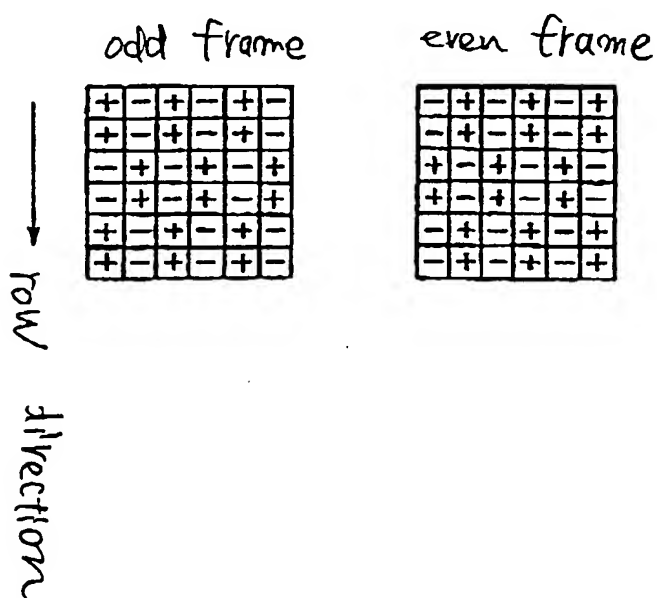 odd frame
even frame
+ - + - + -
+ - + - + -
- + - + - +
- + - + - +
+ - + - + -
+ - + - + -
- + - + - +
- + - + - +
+ - + - + -
+ - + - + -
- + - + - +
- + - + - +
row direction